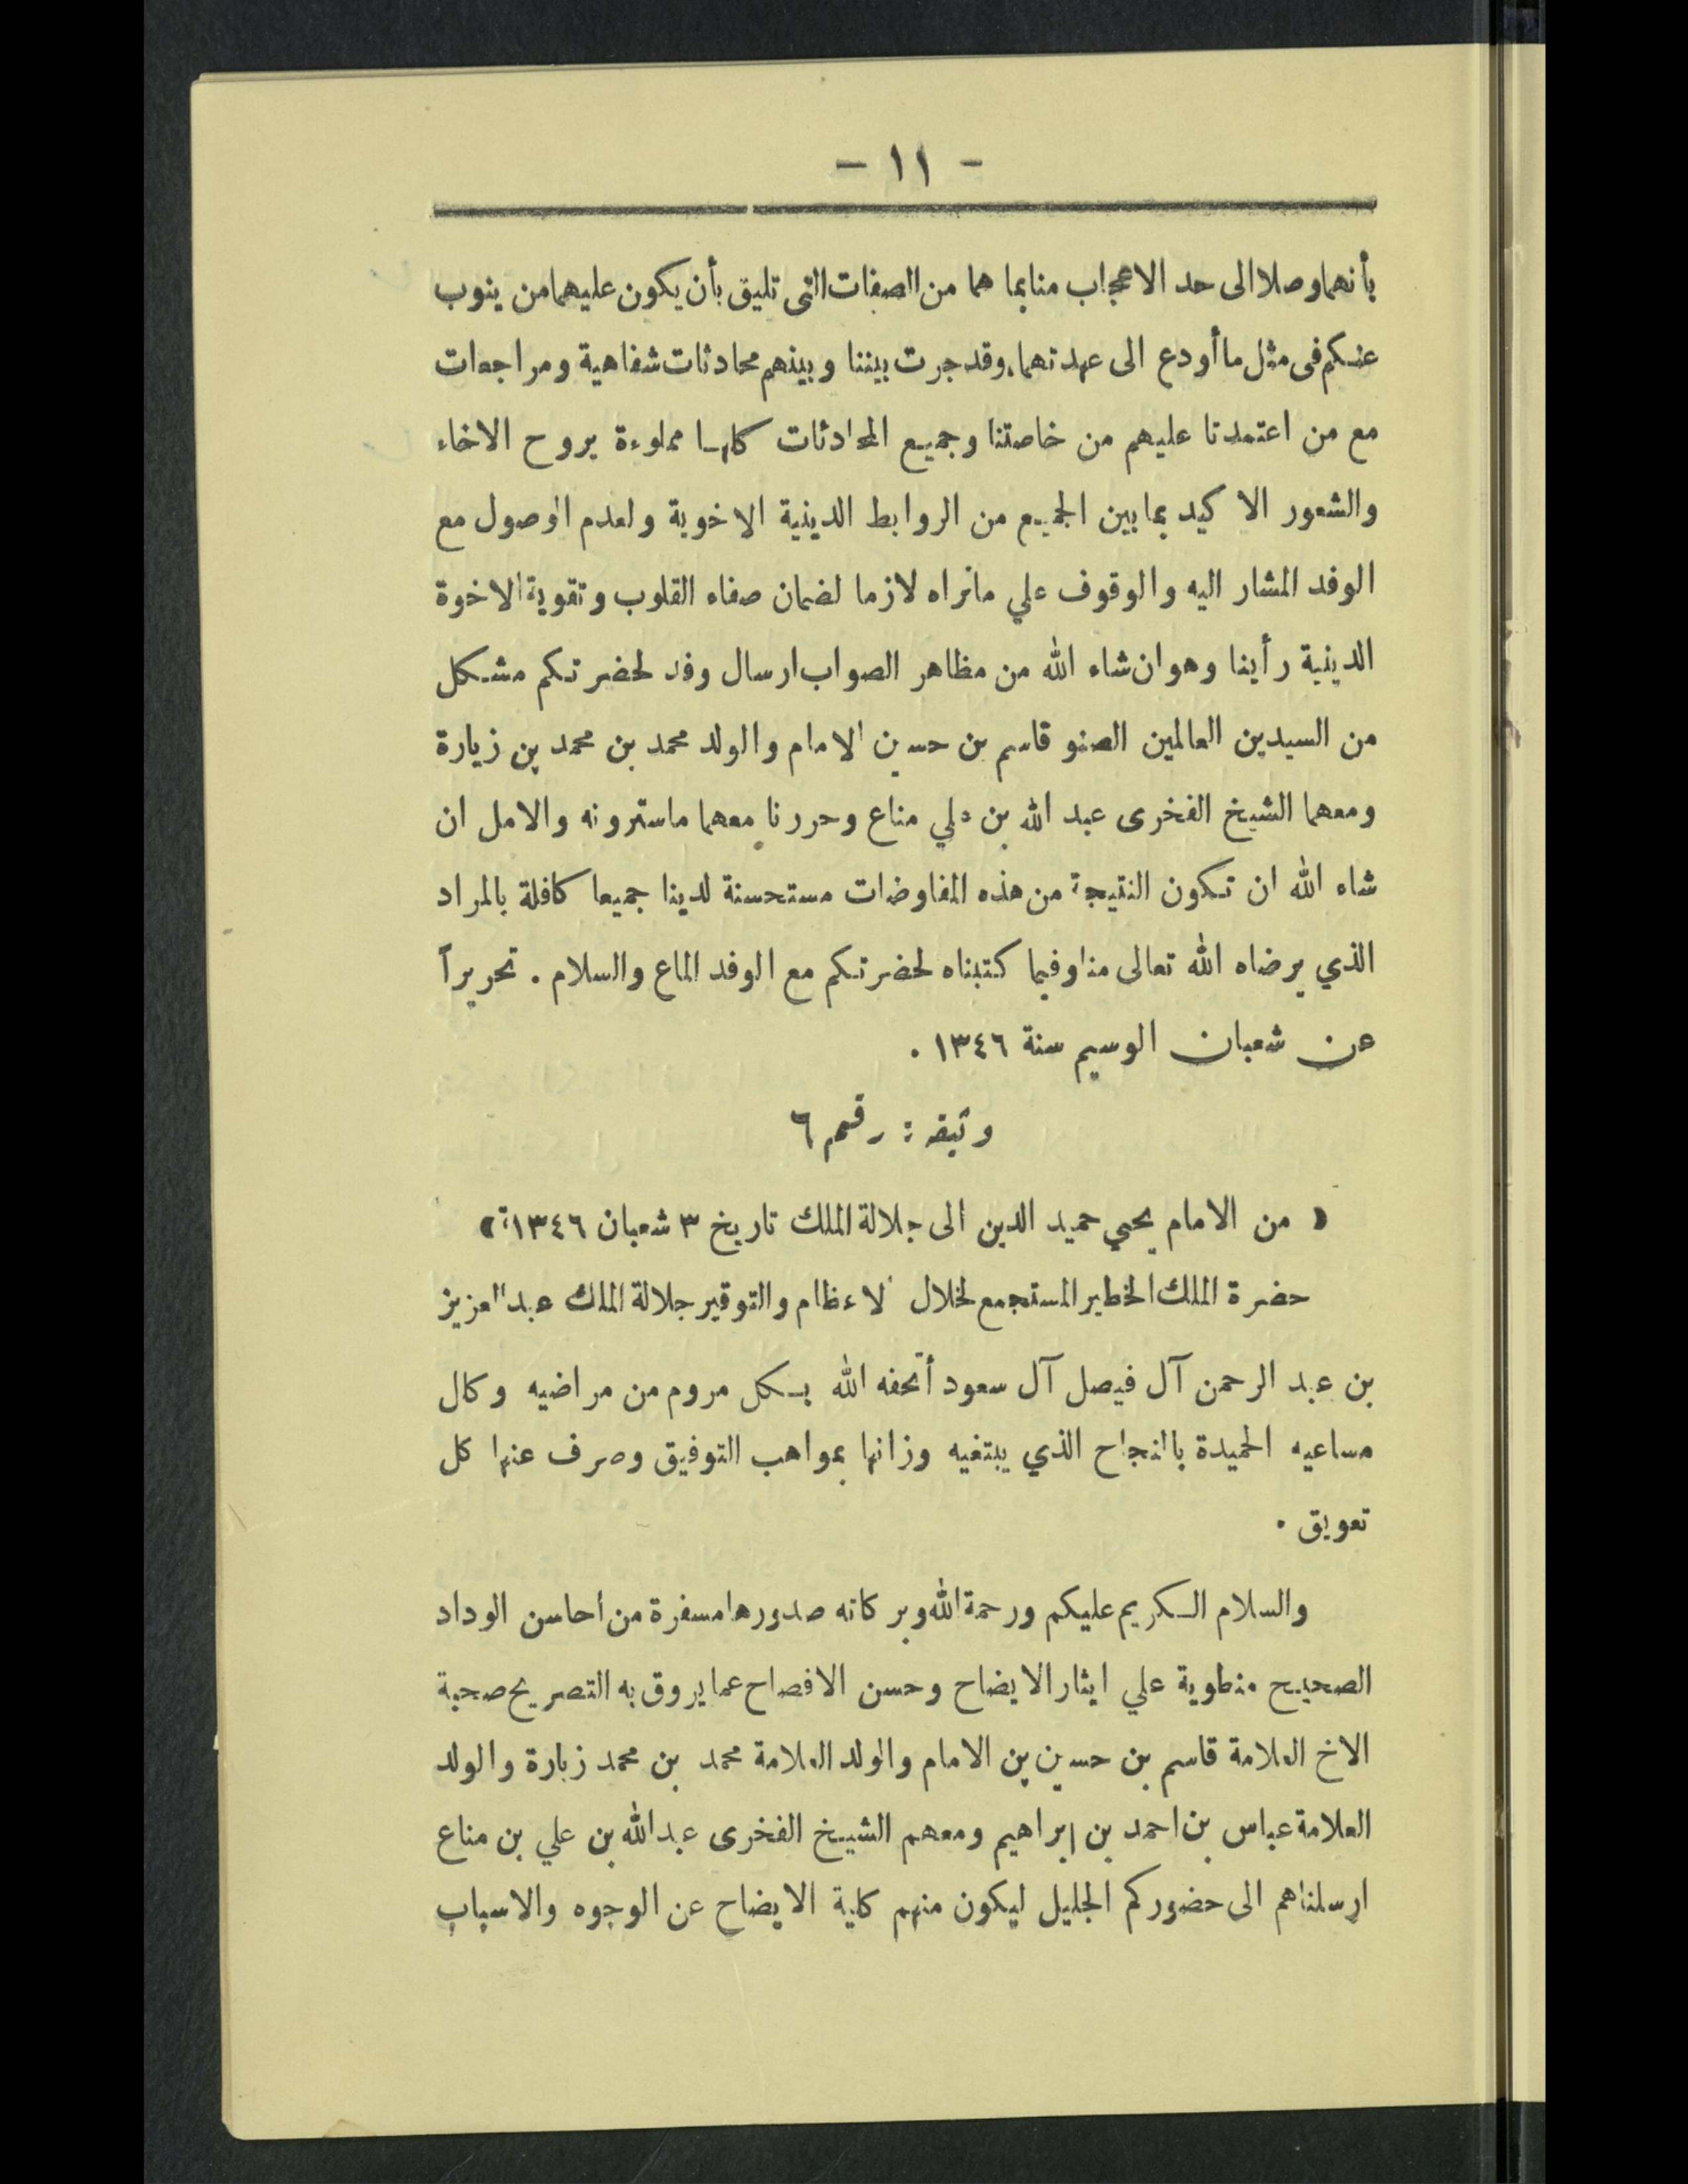 - ١١ -
بأنهما وصلا الى حد الاعجاب منا بما هما من الصفات التى تليق بأن يكون عليهما من ينوب
عنكم فى مثل ما أودع الى عهدتهما، وقد جرت بيننا وبينهم محادثات شفاهية ومراجعات
مع من اعتمدنا عليهم من خاصتنا وجميع المحادثات كلها مملوءة بروح الاخاء
والشعور الاكيد بما بين الجميع من الروابط الدينية الاخوية ولعدم الوصول مع
الوفد المشار اليه والوقوف علي مانراه لازما لضمان صفاء القلوب وتقوية الاخوة
الدينية رأينا وهو ان شاء الله من مظاهر الصواب ارسال وفد لحضرتكم مشكل
من السيدين العالمين الصنو قاسم بن حسين الامام والولد محمد بن محمد بن زيارة
ومعهما الشيخ الفخرى عبد الله بن علي مناع وحررنا معهما ماسترونه والامل ان
شاء الله ان تكون النتيجة من هذه المفاوضات مستحسنة لدينا جميعا كافلة بالمراد
الذي يرضاه الله تعالى منا وفيما كتبناه لحضرتكم مع الوفد الماع والسلام . تحريراً
عن شعبان الوسيم سنة ١٣٤٦ .
وثيقه : رقم ٦
« من الامام يحيي حميد الدين الى جلالة الملك تاريخ ٣ شعبان ١٣٤٦ »
حضرة الملك الخطير المستجمع لخلال الاعظام والتوقير جلالة الملك عبد العزيز
بن عبد الرحمن آل فيصل آل سعود أتحفه الله بكل مروم من مراضيه وكال
مساعيه الحميدة بالنجاح الذي يبتغيه وزانها بمواهب التوفيق وصرف عنها كل
تعويق .
والسلام الكريم عليكم ورحمة الله وبركاته صدورها مسفرة من احاسن الوداد
الصحيح منطوية علي ايثار الايضاح وحسن الافصاح عما يروق به التصريح صحبة
الاخ العلامة قاسم بن حسين بن الامام والولد العلامة محمد بن محمد زبارة والولد
العلامة عباس بن احمد بن ابراهيم ومعهم الشيخ الفخرى عبد الله بن علي بن مناع
ارسلناهم الى حضوركم الجليل ليكون منهم كلية الايضاح عن الوجوه والاسباب